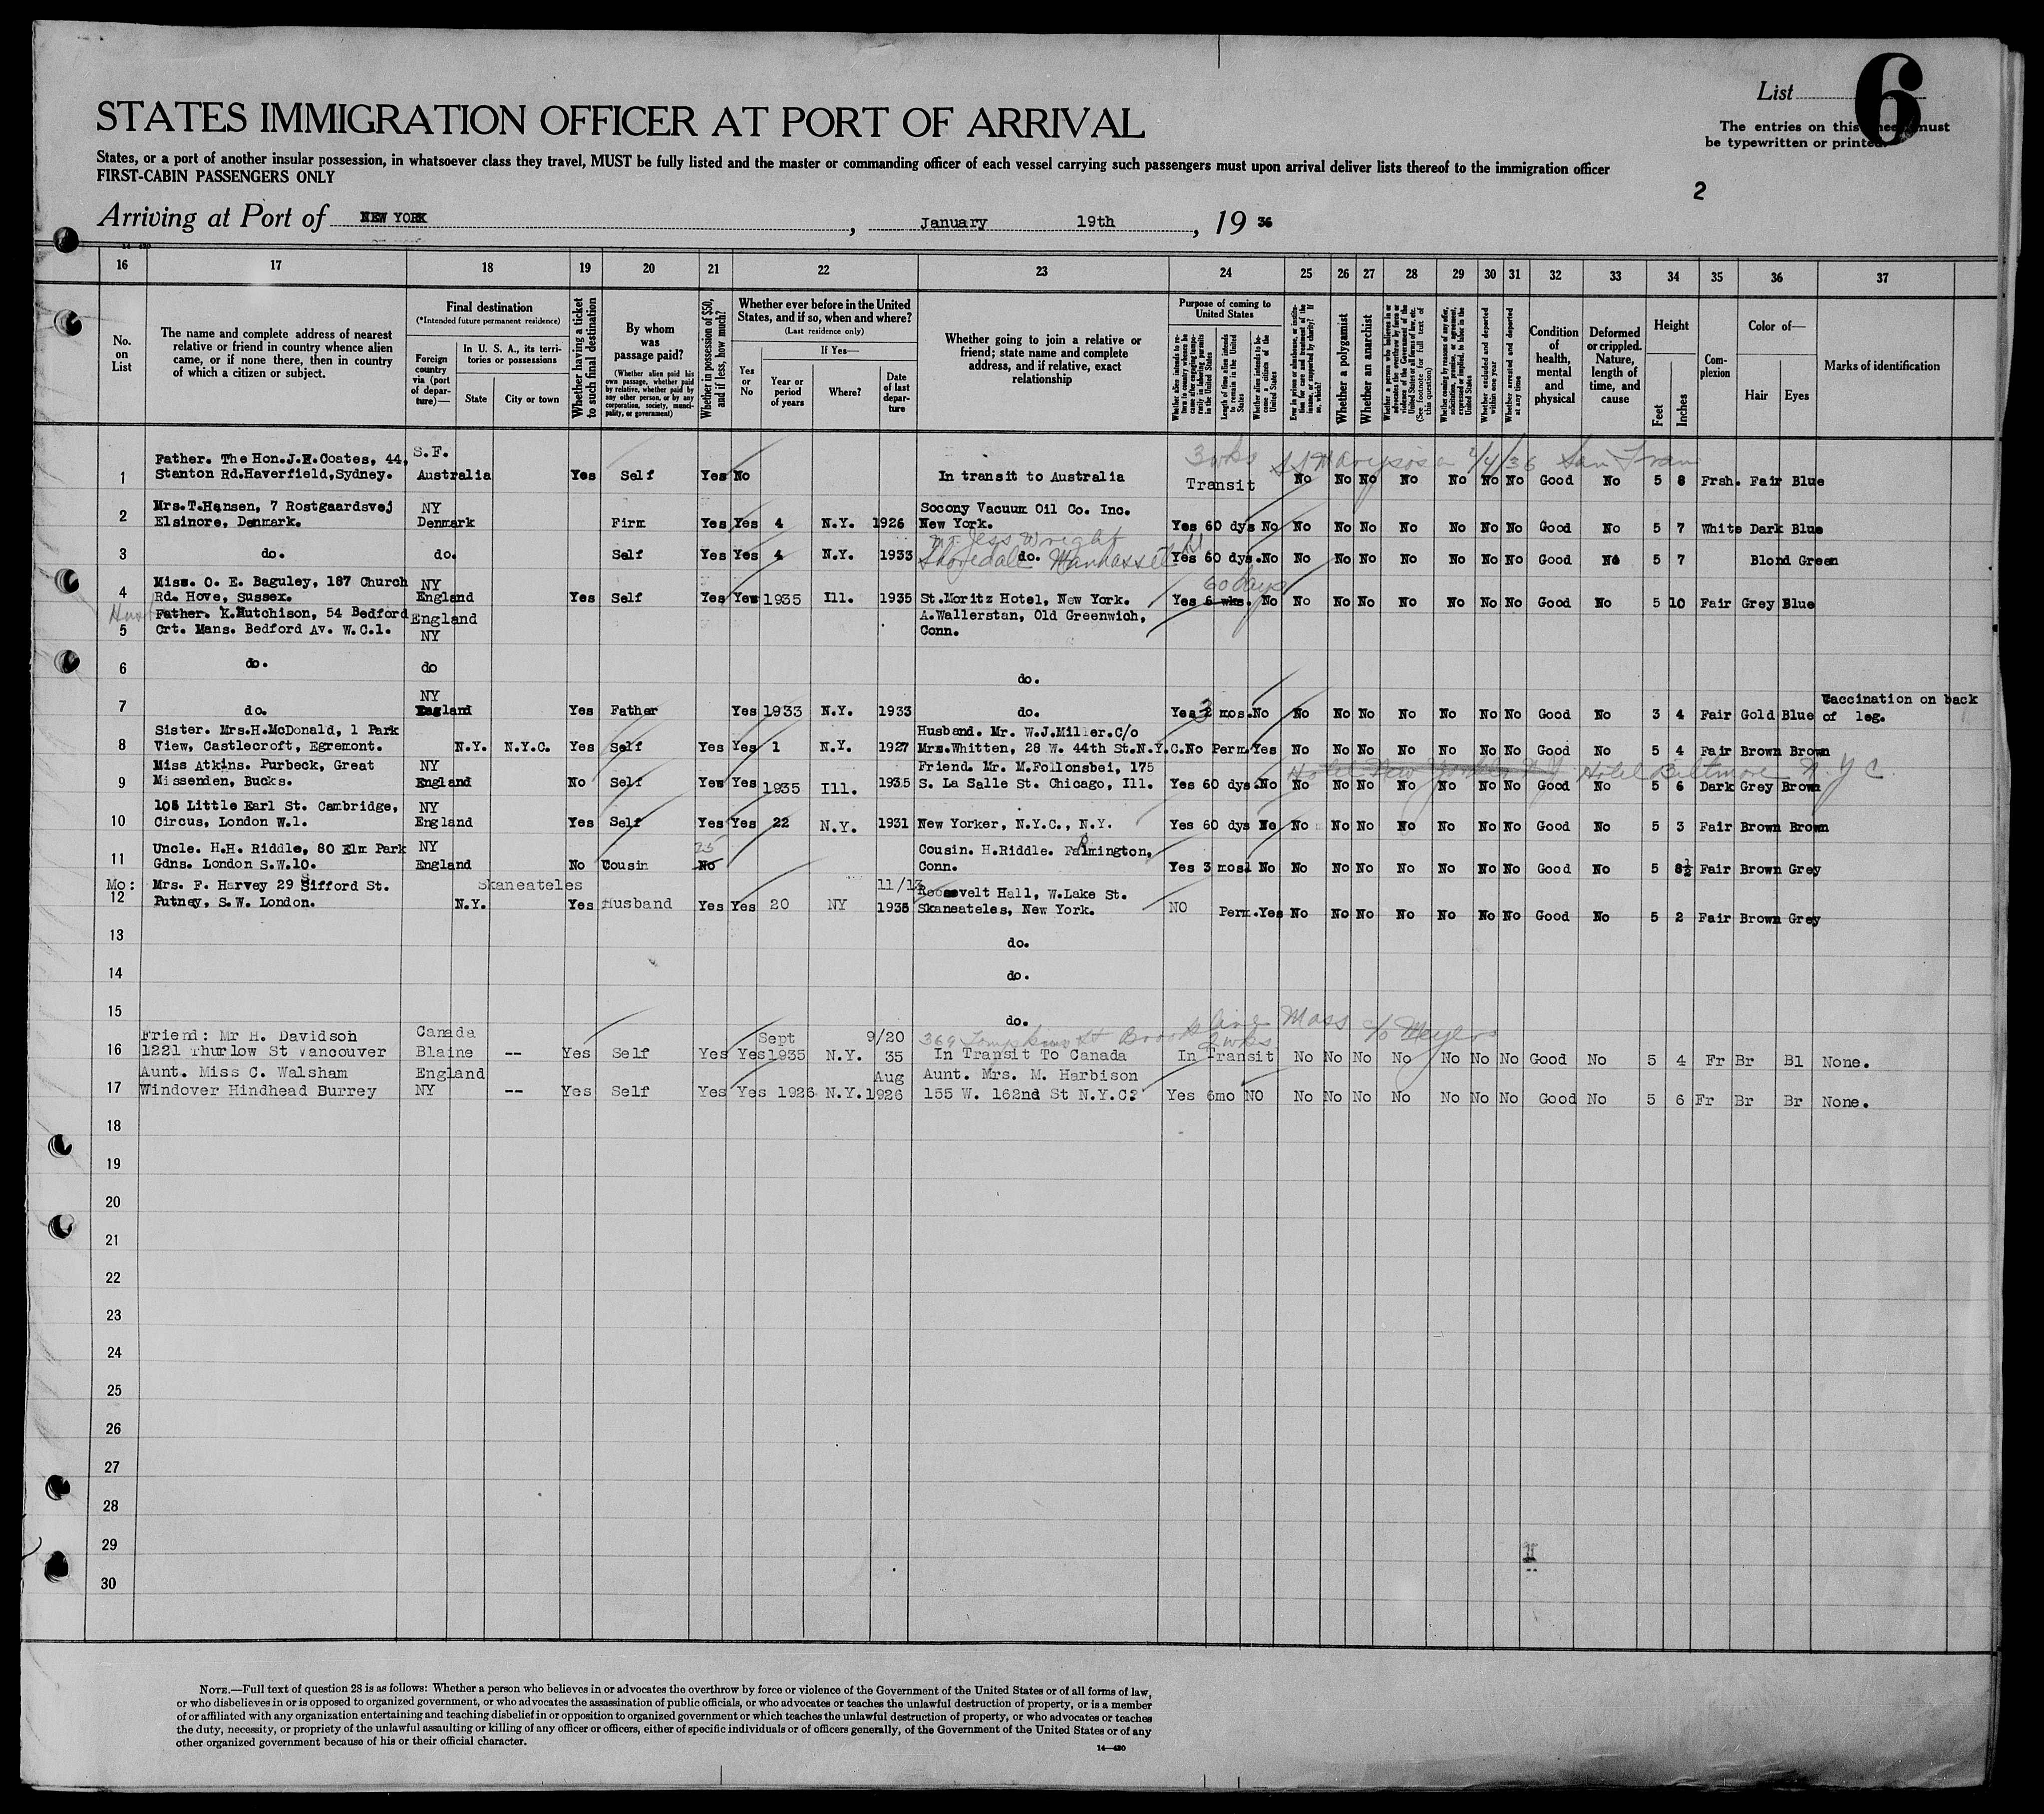 List 6
STATES IMMIGRATION OFFICER AT PORT OF ARRIVAL
The entries on this sheet must
be typewritten or printed.
States, or a port of another insular possession, in whatsoever class they travel, MUST be fully listed and the master or commanding officer of each vessel carrying such passengers must upon arrival deliver lists thereof to the immigration officer
FIRST-CABIN PASSENGERS ONLY
2
Arriving at Port of NEW YORK, January 19th, 19 36
16 17 18 19 20 21 22 23 24 25 26 27 28 29 30 31 32 33 34 35 36 37
No. on List
The name and complete address of nearest relative or friend in country whence alien came, or if none there, then in country of which a citizen or subject.
Final destination
(*Intended future permanent residence)
Foreign country via (port of departure)—
In U. S. A., its territories or possessions
State
City or town
Whether having a ticket to such final destination
By whom was passage paid?
(Whether alien paid his own passage, whether paid by relative, whether paid by any other person, or by any corporation, society, municipality, or government)
Whether in possession of $50, and if less, how much?
Whether ever before in the United States, and if so, when and where?
(Last residence only)
Yes or No
If Yes—
Year or period of years
Where?
Date of last departure
Whether going to join a relative or friend; state name and complete address, and if relative, exact relationship
Purpose of coming to United States
Whether alien intends to return to country whence he came after engaging temporarily in laboring pursuits in the United States
Length of time alien intends to remain in the United States
Whether alien intends to become a citizen of the United States
Ever in prison or almshouse, or institution for care and treatment of the insane, or supported by charity? If so, which?
Whether a polygamist
Whether an anarchist
(See footnote for full text of this question)
Whether coming by reason of any offer, solicitation, promise, or agreement, expressed or implied, to labor in the United States
Whether excluded and deported within one year
Whether arrested and deported at any time
Condition of health, mental and physical
Deformed or crippled. Nature, length of time, and cause
Height
Feet
Inches
Complexion
Color of—
Hair
Eyes
Marks of identification
3 wks 2/4/36 San Fran
Father. The Hon.J.E.Coates, 44, S.F.
1 Stanton Rd.Haverfield,Sydney. Australia Yes Self Yes No In transit to Australia Transit No No No No No No No Good No 5 8 Frsh. Fair Blue
Mrs.T.Hansen, 7 Rostgaardsvej NY Socony Vacuum Oil Co. Inc.
2 Elsinore, Denmark. Denmark Firm Yes Yes 4 N.Y. 1926 New York. Yes 60 dys No No No No No No No No Good No 5 7 White Dark Blue
Mr. Jess Wright
3 do. do. Self Yes Yes 4 N.Y. 1933 do. Yes 60 dys. No No No No No No No No Good No 5 7 Blond Green
Miss. O. E. Baguley, 187 Church NY 60 days
4 Rd. Hove, Sussex. England Yes Self Yes Yes 1935 Ill. 1935 St.Moritz Hotel, New York. Yes 6 wks. No No No No No No No No Good No 5 10 Fair Grey Blue
Father. K.Hutchison, 54 Bedford England A.Wallerstan, Old Greenwich,
5 Crt. Mans. Bedford Av. W.C.1. NY Conn.
6 do. do do.
NY Vaccination on back
7 do. England Yes Father Yes 1933 N.Y. 1933 do. Yes 3 mos. No No No No No No No No Good No 3 4 Fair Gold Blue of leg.
Sister. Mrs.H.McDonald, 1 Park Husband. Mr. W.J.Miller.C/o
8 View, Castlecroft, Egremont. N.Y. N.Y.C. Yes Self Yes Yes 1 N.Y. 1927 Mrs.Whitten, 28 W. 44th St.N.Y.C. No Perm. Yes No No No No No No No Good No 5 4 Fair Brown Brown
Miss Atkins. Purbeck, Great NY Friend. Mr. M.Follonsbei, 175 Hotel New Yorker N Y Hotel Biltmore N. Y C.
9 Missenden, Bucks. England No Self Yes Yes 1935 Ill. 1935 S. La Salle St. Chicago, Ill. Yes 60 dys. No No No No No No No No Good No 5 6 Dark Grey Brown
105 Little Earl St. Cambridge, NY
10 Circus, London W.1. England Yes Self Yes Yes 22 N.Y. 1931 New Yorker, N.Y.C., N.Y. Yes 60 dys No No No No No No No No Good No 5 3 Fair Brown Brown
Uncle. H.H. Riddle, 80 Elm Park NY 25 Cousin. H.Riddle. Farmington,
11 Gdns. London S.W.10. England No Cousin No Conn. Yes 3 mos No No No No No No No No Good No 5 8½ Fair Brown Grey
Mo: Mrs. F. Harvey 29 Sifford St. Skaneateles 11/13 Roosevelt Hall, W.Lake St.
12 Putney, S.W. London. N.Y. Yes Husband Yes Yes 20 NY 1935 Skaneateles, New York. NO Perm. Yes No No No No No No No Good No 5 2 Fair Brown Grey
13 do.
14 do.
15 do.
369 St Brookline Mass c/o Meyers
Friend: Mr H. Davidson Canada Sept 9/20 2 wks
16 1221 Thurlow St Vancouver Blaine -- Yes Self Yes Yes 1935 N.Y. 35 In Transit To Canada In Transit No No No No No No No Good No 5 4 Fr Br Bl None.
Aunt. Miss C. Walsham England Aug Aunt. Mrs. M. Harbison
17 Windover Hindhead Burrey NY -- Yes Self Yes Yes 1926 N.Y. 1926 155 W. 162nd St N.Y.C? Yes 6mo NO No No No No No No No Good No 5 6 Fr Br Br None.
18
19
20
21
22
23
24
25
26
27
28
29
30
NOTE.—Full text of question 28 is as follows: Whether a person who believes in or advocates the overthrow by force or violence of the Government of the United States or of all forms of law,
or who disbelieves in or is opposed to organized government, or who advocates the assassination of public officials, or who advocates or teaches the unlawful destruction of property, or is a member
of or affiliated with any organization entertaining and teaching disbelief in or opposition to organized government or which teaches the unlawful destruction of property, or who advocates or teaches
the duty, necessity, or propriety of the unlawful assaulting or killing of any officer or officers, either of specific individuals or of officers generally, of the Government of the United States or of any
other organized government because of his or their official character.
14—430